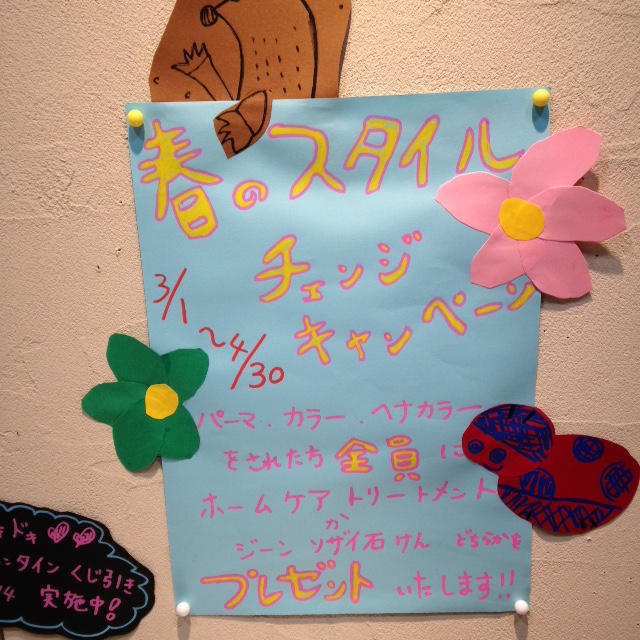 春のスタイル
チェンジ
キャンペーン
3/1
〜4/30
パーマ.カラー.ヘナカラー
をされたち全員に
ホームケアトリートメント
か
ジーンソザイ石けん どちらかを
プレゼントいたします!!
ドキ
タイン くじ引き
実施中!